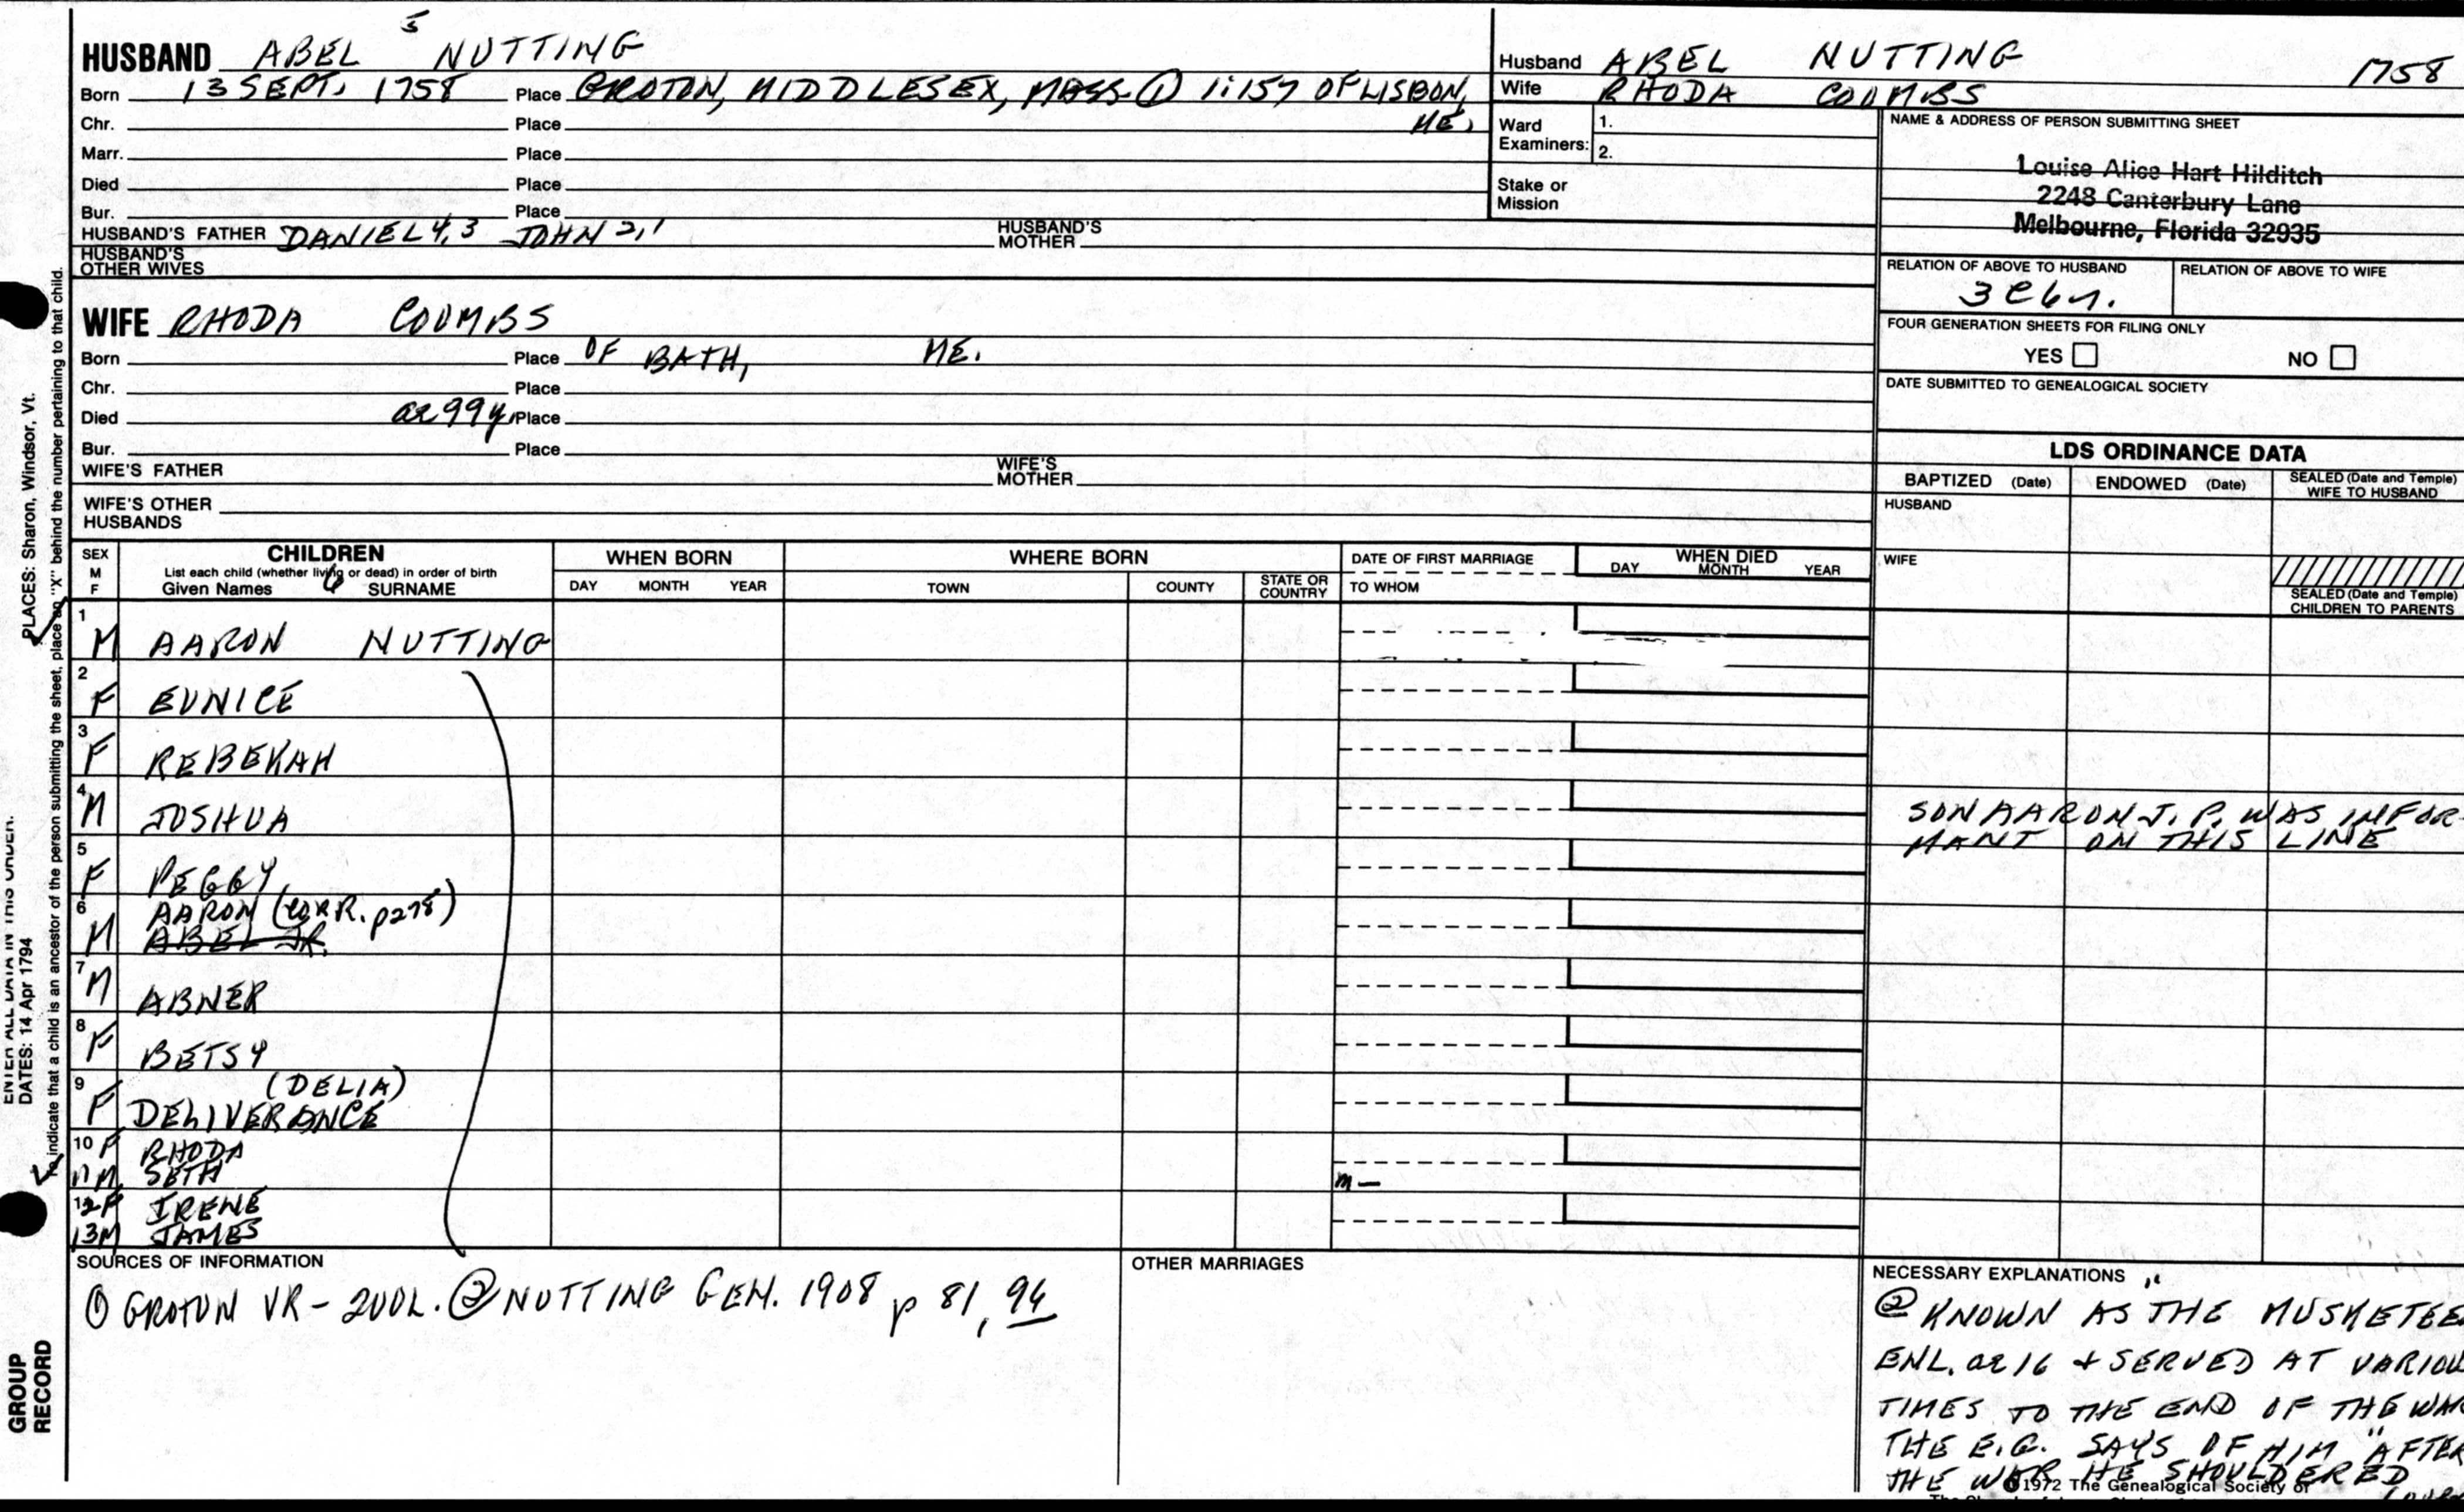 5
HUSBAND ABEL NUTTING
Born 13 SEPT. 1758 Place GROTON, MIDDLESEX, MASS. ① 1:157 OF LISBON,
ME.
Chr. Place
Marr. Place
Died Place
Bur. Place
HUSBAND'S FATHER DANIEL 4,3 JOHN 2,1 HUSBAND'S MOTHER
HUSBAND'S OTHER WIVES
Husband ABEL NUTTING 1758
Wife RHODA COOMBS
Ward Examiners: 1.
2.
Stake or Mission
NAME & ADDRESS OF PERSON SUBMITTING SHEET
Louise Alice Hart Hilditch
2248 Canterbury Lane
Melbourne, Florida 32935
RELATION OF ABOVE TO HUSBAND RELATION OF ABOVE TO WIFE
FOUR GENERATION SHEETS FOR FILING ONLY
YES NO
DATE SUBMITTED TO GENEALOGICAL SOCIETY
WIFE RHODA COOMBS
Born Place OF BATH, ME.
Chr. Place
Died ae 99y Place
Bur. Place
WIFE'S FATHER WIFE'S MOTHER
WIFE'S OTHER HUSBANDS
LDS ORDINANCE DATA
BAPTIZED (Date) ENDOWED (Date) SEALED (Date and Temple) WIFE TO HUSBAND
HUSBAND
WIFE
SEALED (Date and Temple) CHILDREN TO PARENTS
SEX M F
CHILDREN
List each child (whether living or dead) in order of birth
Given Names 6 SURNAME
WHEN BORN
DAY MONTH YEAR
WHERE BORN
TOWN COUNTY STATE OR COUNTRY
DATE OF FIRST MARRIAGE
TO WHOM
WHEN DIED
DAY MONTH YEAR
1 M AARON NUTTING
2 F EUNICE
3 F REBEKAH
4 M JOSHUA
5 F PEGGY
6 M AARON (CORR. p278)
ABEL JR.
7 M ABNER
8 F BETSY
9 F (DELIA)
DELIVERANCE
10 F RHODA
11 M SETH m —
12 F IRENE
13 M JAMES
SON AARON J. P. WAS INFOR-
MANT ON THIS LINE
SOURCES OF INFORMATION
① GROTON VR - 2VOL. ② NUTTING GEN. 1908 p 81, 94
OTHER MARRIAGES
NECESSARY EXPLANATIONS
② KNOWN AS "THE MUSKETEE
ENL. ae 16 + SERVED AT VARIOU
TIMES TO THE END OF THE WAR
THE E.G. SAYS OF HIM "AFTER
THE WAR HE SHOULDERED
©1972 The Genealogical Society of
ENTER ALL DATA IN THIS ORDER.
DATES: 14 Apr 1794
PLACES: Sharon, Windsor, Vt.
To indicate that a child is an ancestor of the person submitting the sheet, place an "X" behind the number pertaining to that child.
GROUP
RECORD